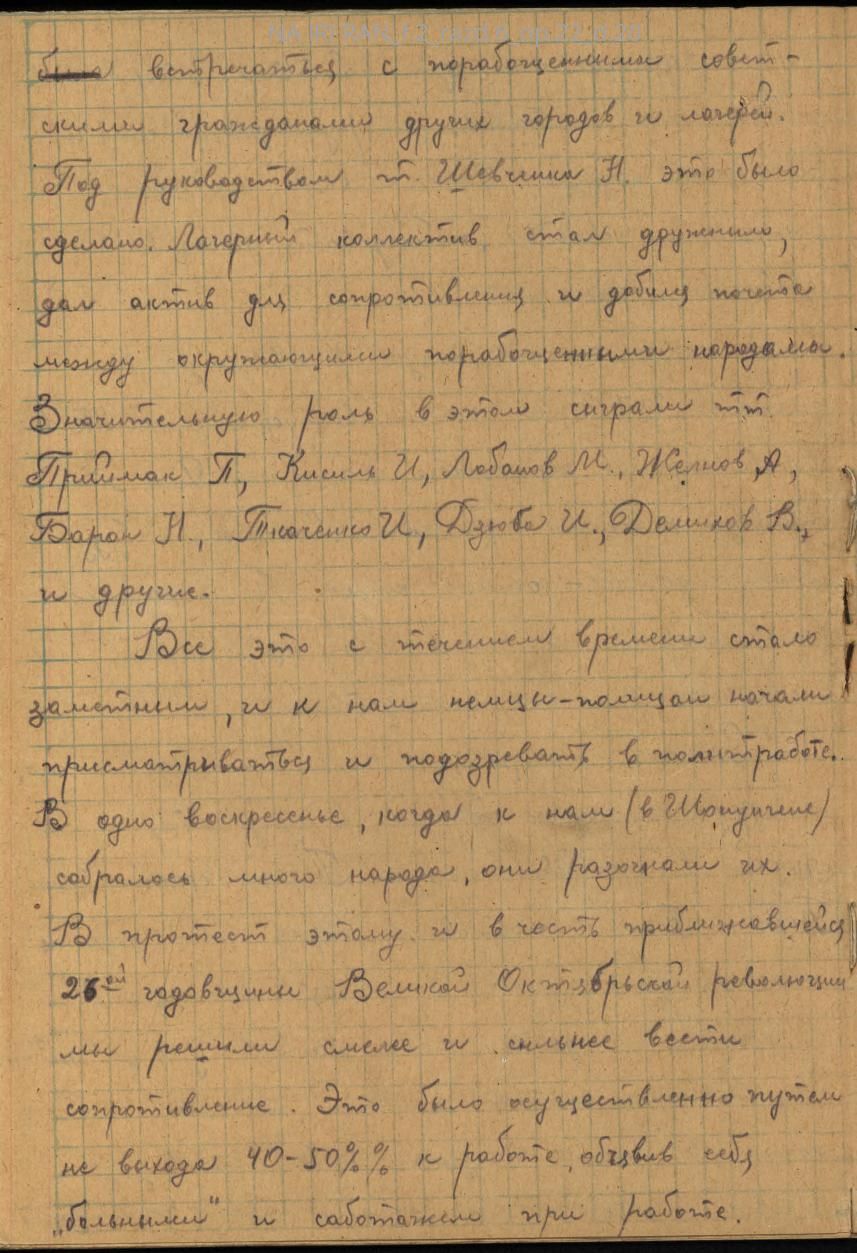 NA IRI RAN, f.2, razd.6, op.22, d.20
была встречаться с порабощенными совет-
скими гражданами других городов и лагерей.
Под руководством т. Шевченка Н. это было
сделано. Лагерный коллектив стал дружным,
дал актив для сопротивления и добился почета
между окружающими порабощенными народами.
Значительную роль в этом сыграли тт.
Приймак П, Кисиль И, Лобанов М., А,
Баран Н., Ткаченко И, Дзюба И., Демихов В.,
и другие.
Все это с течением времени стало
заметным, и к нам немцы-полицаи начали
присматриваться и подозревать в политработе.
В одно воскресенье, когда к нам (в
собралось много народа, они разогнали их.
В протест этому и в честь приближавшейся
26ой годовщины Великой Октябрьской революции
мы решили смелее и сильнее вести
сопротивление. Это было осуществленно путем
не выхода 40-50%% к работе, объявив себя
„больными" и саботажем при работе.